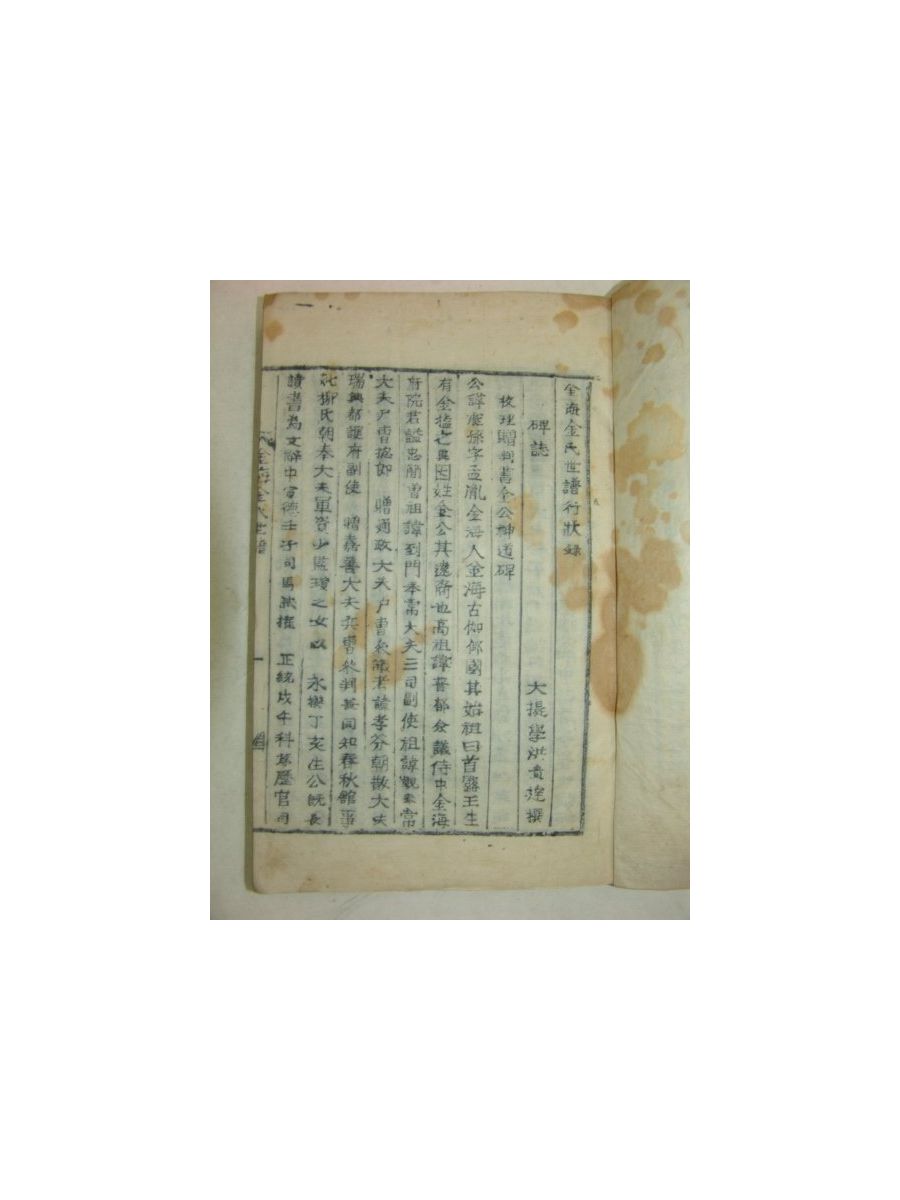 金海金氏世譜行狀錄
碑誌 大提學洪貴達撰
校理贈判書金公神道碑
公諱 孫字孟胤金海人金海古伽倻國其始祖曰首露王生
有金榼之異因姓金公其遠裔也高祖諱 都僉議侍中金海
府院君諡忠簡曾祖諱到門奉常大夫三司副使祖諱觀 常
大夫戶曹 郎 贈通政大夫戶曹參議考諱孝芬朝散大夫
瑞興都護府副使 贈嘉善大夫兵曹參判兼同知春秋館事
柳氏朝奉大夫軍資少監 之女以 永樂丁亥生公旣長
讀書為文辭中宣德壬子司馬試擢 正統戊午科 歷官司
金海金氏世譜 一